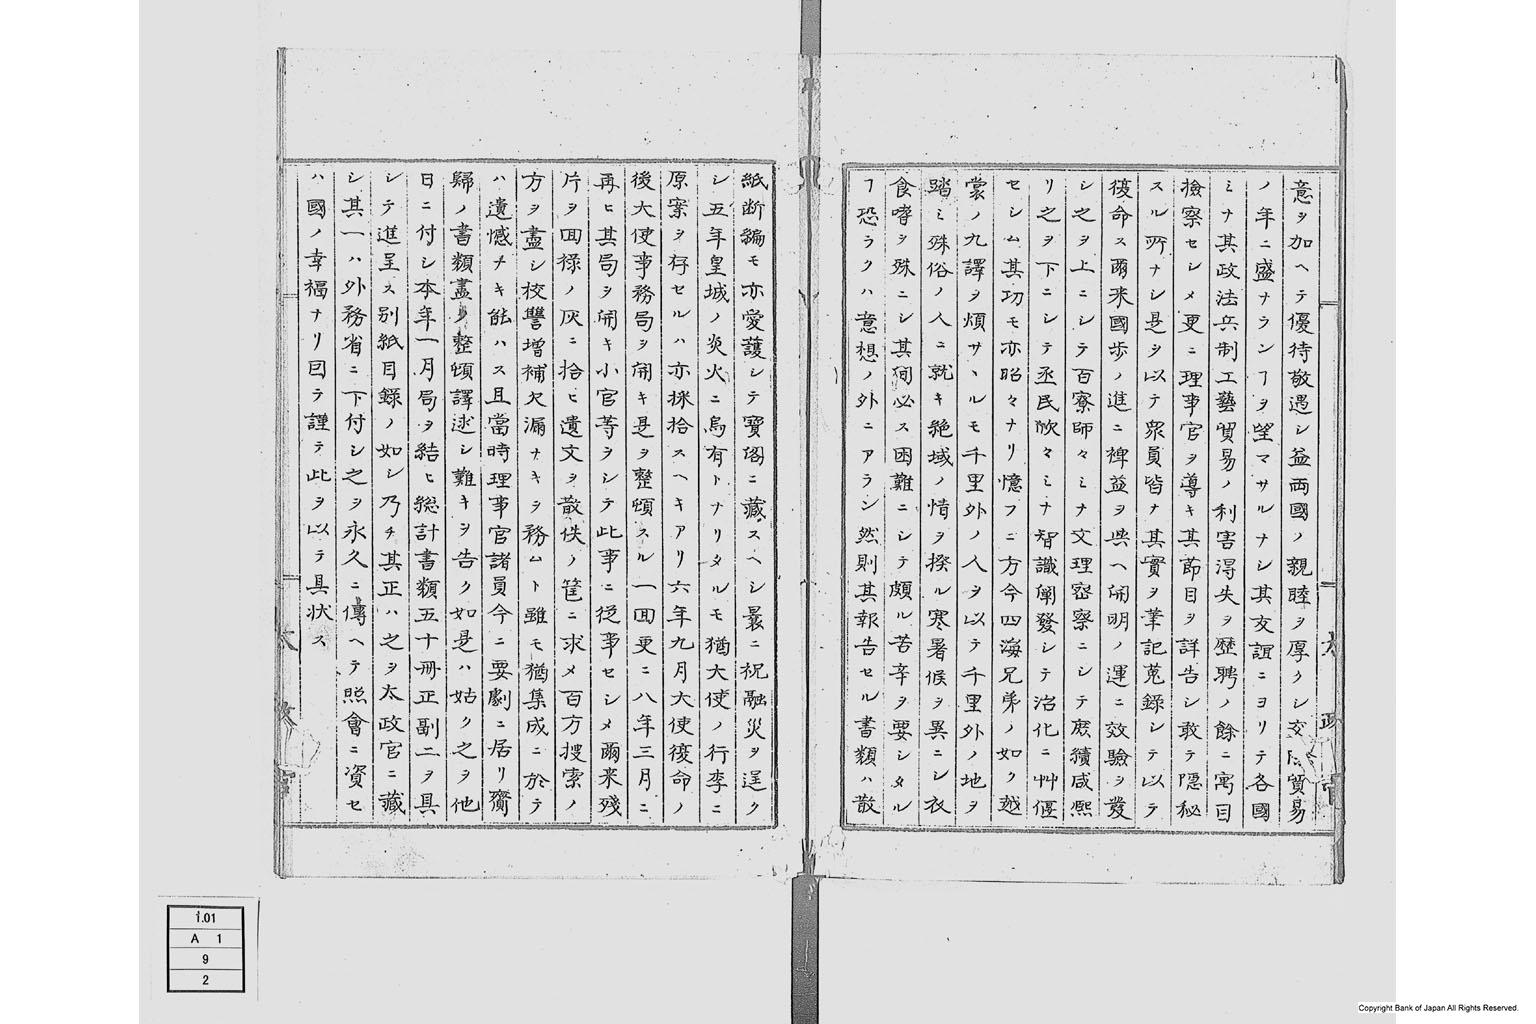 意ヲ加ヘテ優待敬遇シ益両國ノ親睦ヲ厚クシ交際貿易
ノ年ニ盛ナランヿヲ望マサルナシ其交誼ニヨリテ各國
ミナ其政法兵制工藝貿易ノ利害得失ヲ歴聘ノ餘ニ寓目
撿察セシメ更ニ理事官ヲ導キ其節目ヲ詳告シ敢テ隠秘
スル所ナシ是ヲ以テ衆員皆ナ其實ヲ筆記蒐録シテ以テ
復命ス爾来國歩ノ進ニ裨益ヲ與ヘ開明ノ運ニ效驗ヲ發
シ之ヲ上ニシテ百寮師々ミナ文理密察ニシテ庶績咸熙
リ之ヲ下ニシテ丞民歌々ミナ智識闡發シテ治化ニ艸偃
セシム其功モ亦昭々ナリ憶フニ方今四海兄弟ノ如ク越
裳ノ九譯ヲ煩サヽルモ千里外ノ人ヲ以テ千里外ノ地ヲ
踏ミ殊俗ノ人ニ就キ絶域ノ情ヲ揆ル寒暑候ヲ異ニシ衣
食嗜ヲ殊ニシ其間必ス困難ニシテ頗ル苦辛ヲ要シタル
ヿ恐ラクハ意想ノ外ニアラン然則其報告セル書類ハ散
紙断編モ亦愛護シテ寳閣ニ藏スヘシ曩ニ祝融災ヲ逞ク
シ五年皇城ノ炎火ニ烏有トナリタルモ猶大使ノ行李ニ
原案ヲ存セルハ亦採拾スヘキアリ六年九月大使復命ノ
後大使事務局ヲ開キ是ヲ整頓スル一回更ニ八年三月ニ
再ヒ其局ヲ開キ小官等ヲシテ此事ニ從事セシメ爾来殘
片ヲ回祿ノ灰ニ拾ヒ遺文ヲ散佚ノ筐ニ求メ百方捜索ノ
方ヲ盡シ校讐増補欠漏ナキヲ務ムト雖モ猶集成ニ於テ
ハ遺憾ナキ能ハス且當時理事官諸員今ニ要劇ニ居リ齎
歸ノ書類盡ク整頓譯述シ難キヲ告ク如是ハ姑ク之ヲ他
日ニ付シ本年一月局ヲ結ヒ総計書類五十冊正副二ヲ具
シテ進呈ス別紙目録ノ如シ乃チ其正ハ之ヲ太政官ニ藏
シ其一ハ外務省ニ下付シ之ヲ永久ニ傳ヘテ照會ニ資セ
ハ國ノ幸福ナリ因テ謹テ此ヲ以テ具状ス
太政官
1.01
A 1
9
2
Copyright Bank of Japan All Rights Reserved.